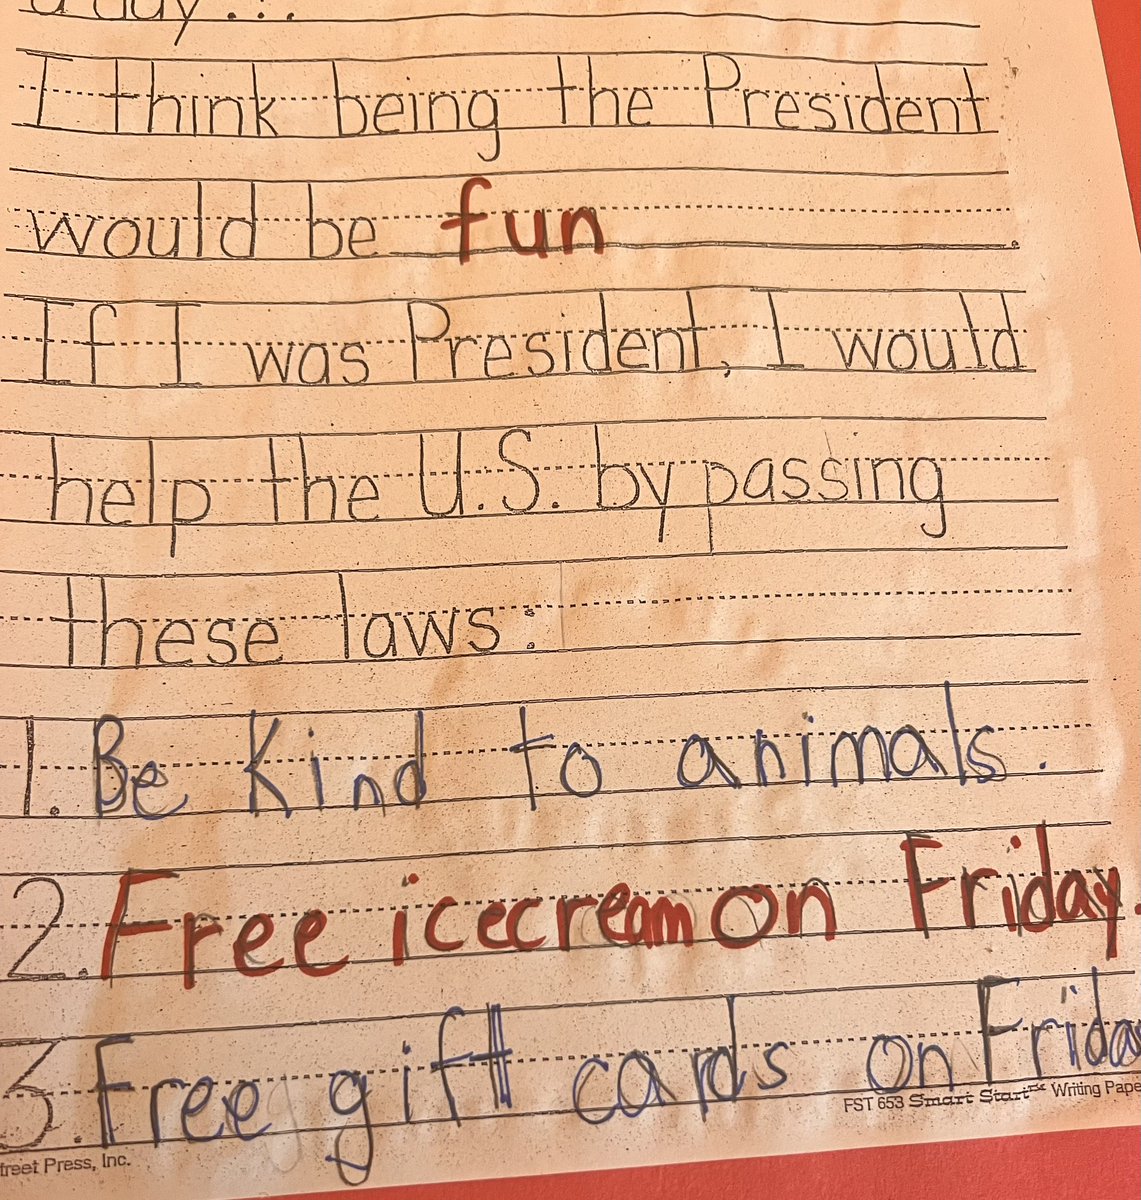 a day...
I think being the President
would be fun.
If I was President, I would
help the U.S. by passing
these laws:
1. Be Kind to animals.
2. Free icecream on Friday.
3. Free gift cards on Frida
FST 653 Smart Start™ Writing Pape
treet Press, Inc.